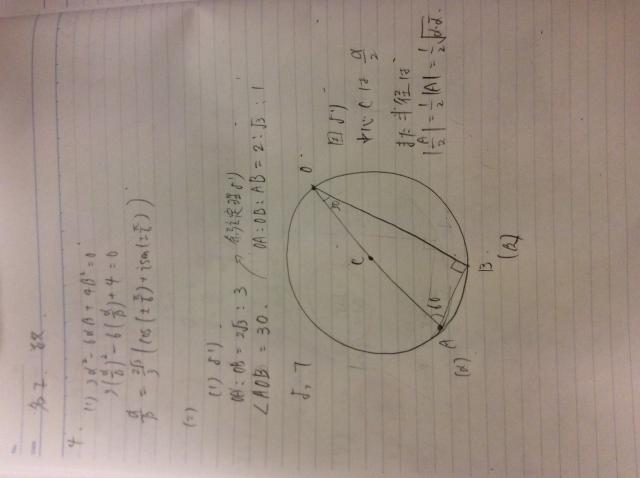 4. (1) 3α²-6αβ+4β²=0
3(α/β)²-6(α/β)+4=0
α/β = 2√3/3 (cos(±π/6)+isin(±π/6))
(2)
(1)より
OA:OB=2√3:3
∠AOB=30.
余弦定理より
OA:OB:AB=2:√3:1
よって
O
30
C
60
A
(α)
B
(β)
図より
中心Cは α/2
また半径は
|A/2|=1/2|A|=1/2√α·ᾱ.